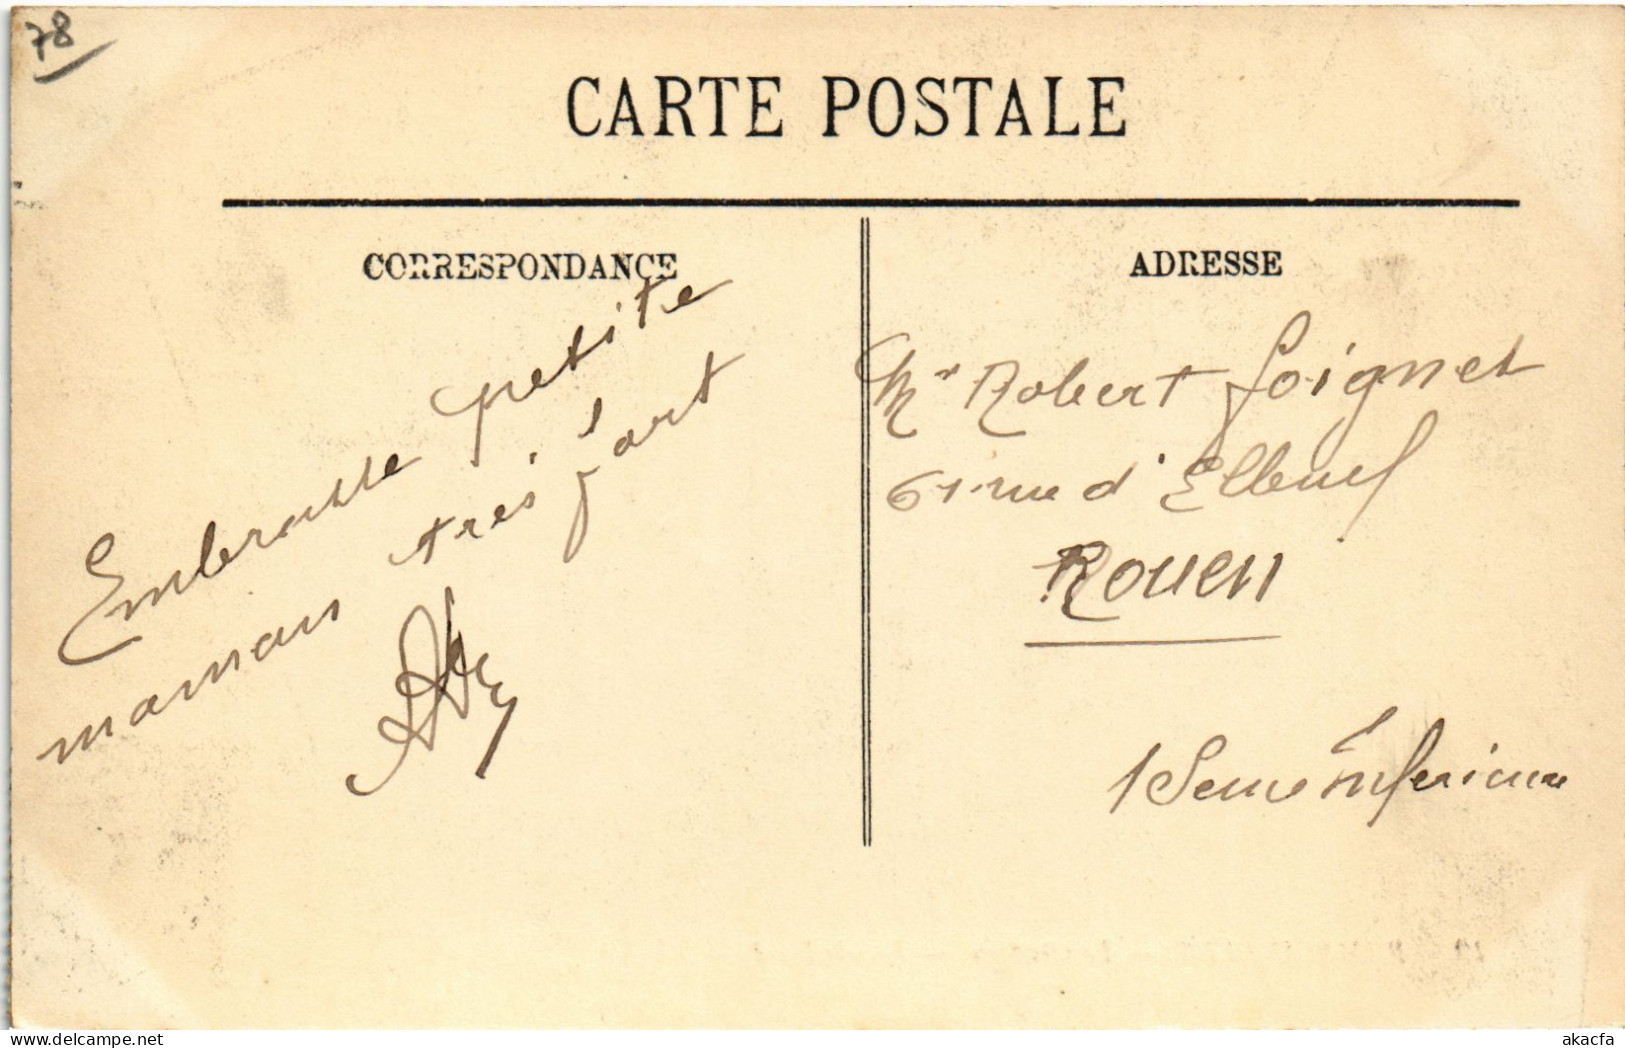 78
CARTE POSTALE
CORRESPONDANCE
Embrasse petite
maman très fort
ADRESSE
Mr Robert Loignet
61 rue d'Elbeuf
ROUEN
Seine Inférieure
akacfa